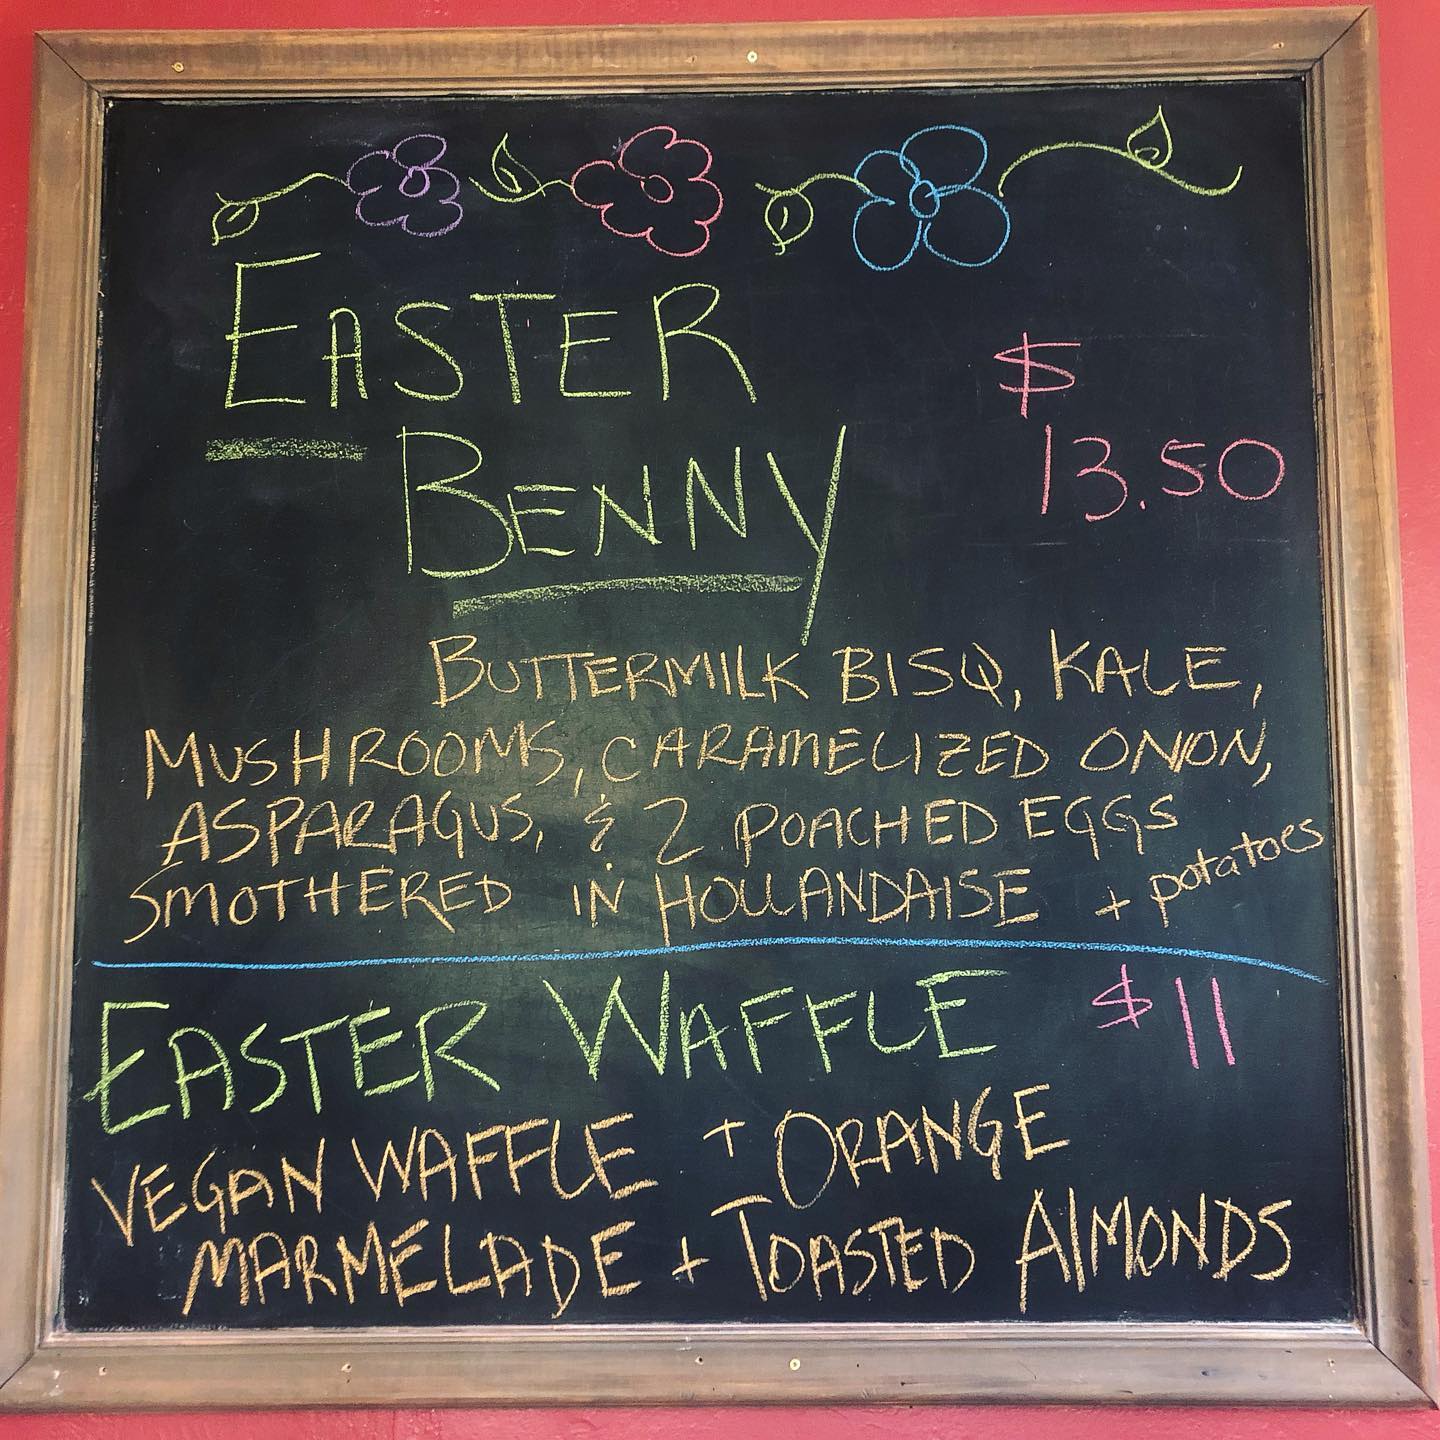 EASTER
BENNY
$
13.50
BUTTERMILK BISQ, KALE,
MUSHROOMS, CARAMELIZED ONION,
ASPARAGUS, & 2 POACHED EGGS
SMOTHERED IN HOLLANDAISE + potatoes
EASTER WAFFLE $11
VEGAN WAFFLE + ORANGE
MARMELADE + TOASTED ALMONDS